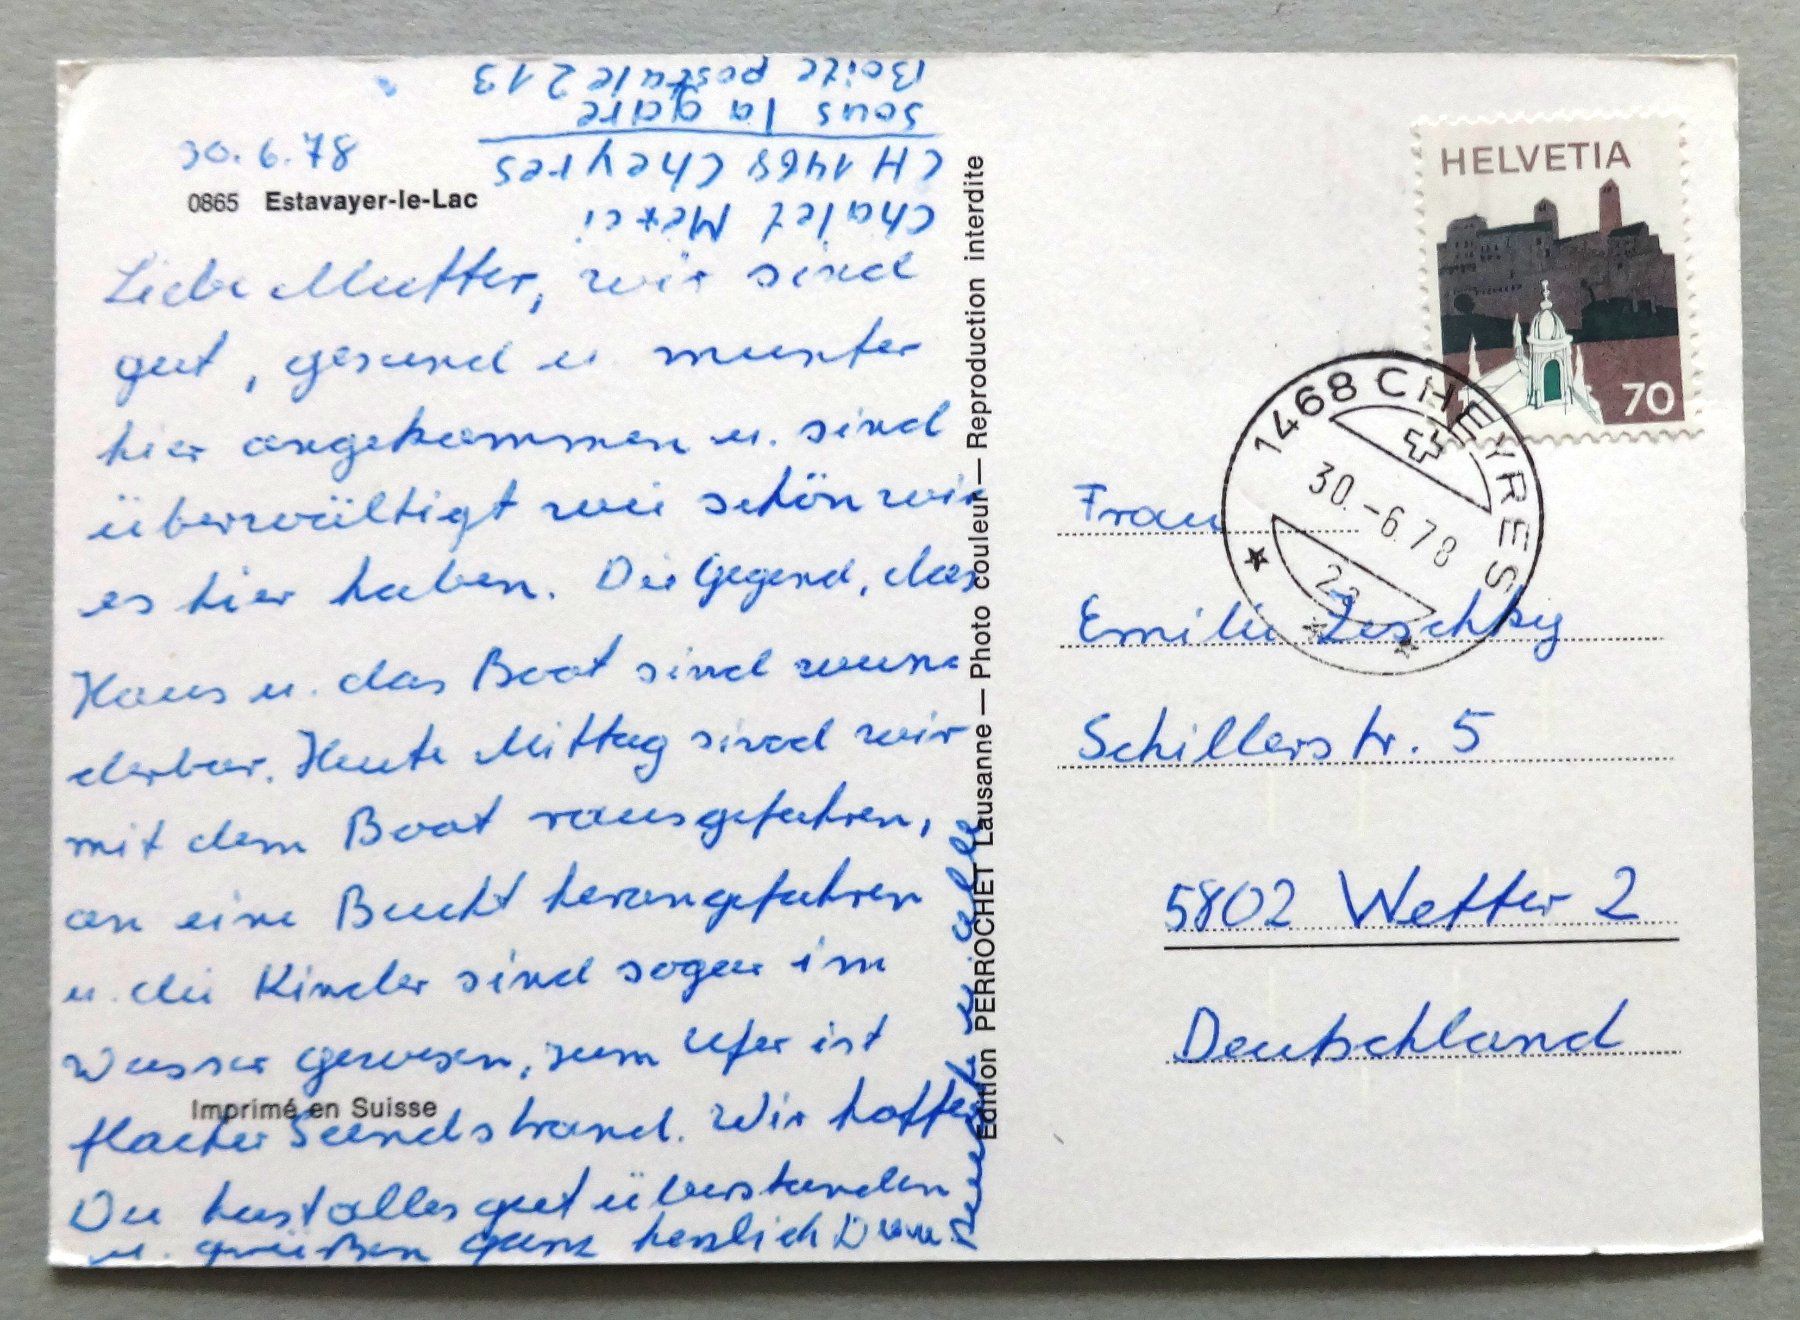 30.6.78
0865 Estavayer-le-Lac
Boîte postale 213
sous la gare
CH 1468 Cheyres
Chalet Merci
Liebe Mutter, wir sind
gut, gesund u munter
hier angekommen u. sind
überwältigt wie schön wir
es hier haben. Die Gegend, das
Haus u. das Boot sind wun-
derbar. Heute Mittag sind wir
mit dem Boot rausgefahren,
an eine Bucht herangefahren
u. die Kinder sind sogar im
Wasser gewesen, zum Ufer ist
flacher Sandstrand. Wir hoffen
Du hast alles gut überstanden
u. grüßen ganz herzlich Deine
u. alle
Imprimé en Suisse
Edition PERROCHET Lausanne — Photo couleur — Reproduction interdite
HELVETIA
70
1468 CHEYRES
30.-6.78
Frau
Emilie
Schillerstr. 5
5802 Wetter 2
Deutschland